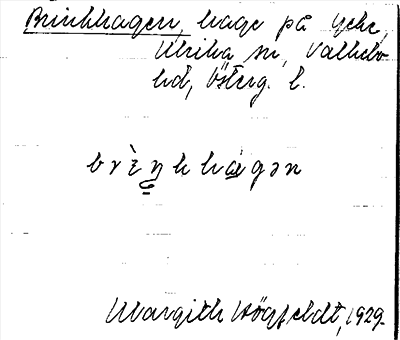 Brinkhagen, hage på Yche,
Ulrika sn, Valkebo
hd, Österg. l.
brìŋkhagən
Margith Högfeldt, 1929.